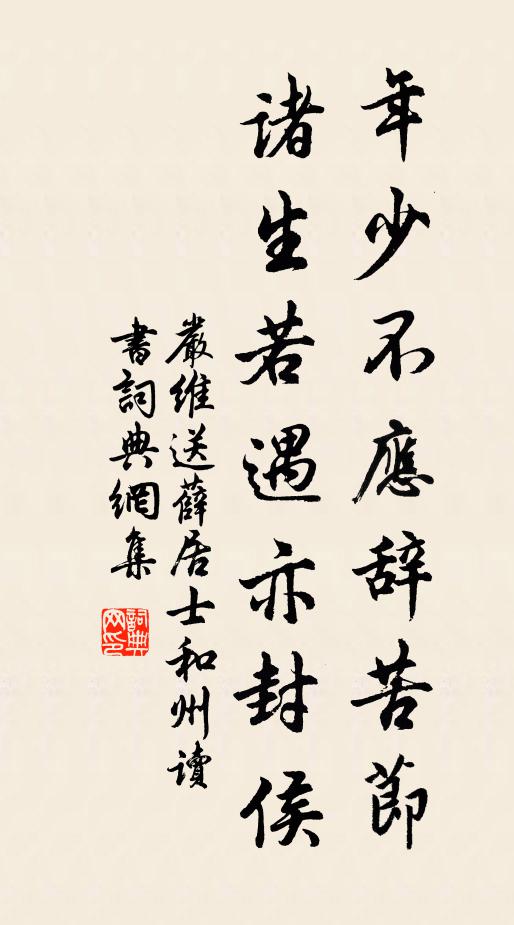 年少不應辞苦節
諸生若遇亦封侯
嚴維送薛居士和州讀
書詞典網集
詞典
网印